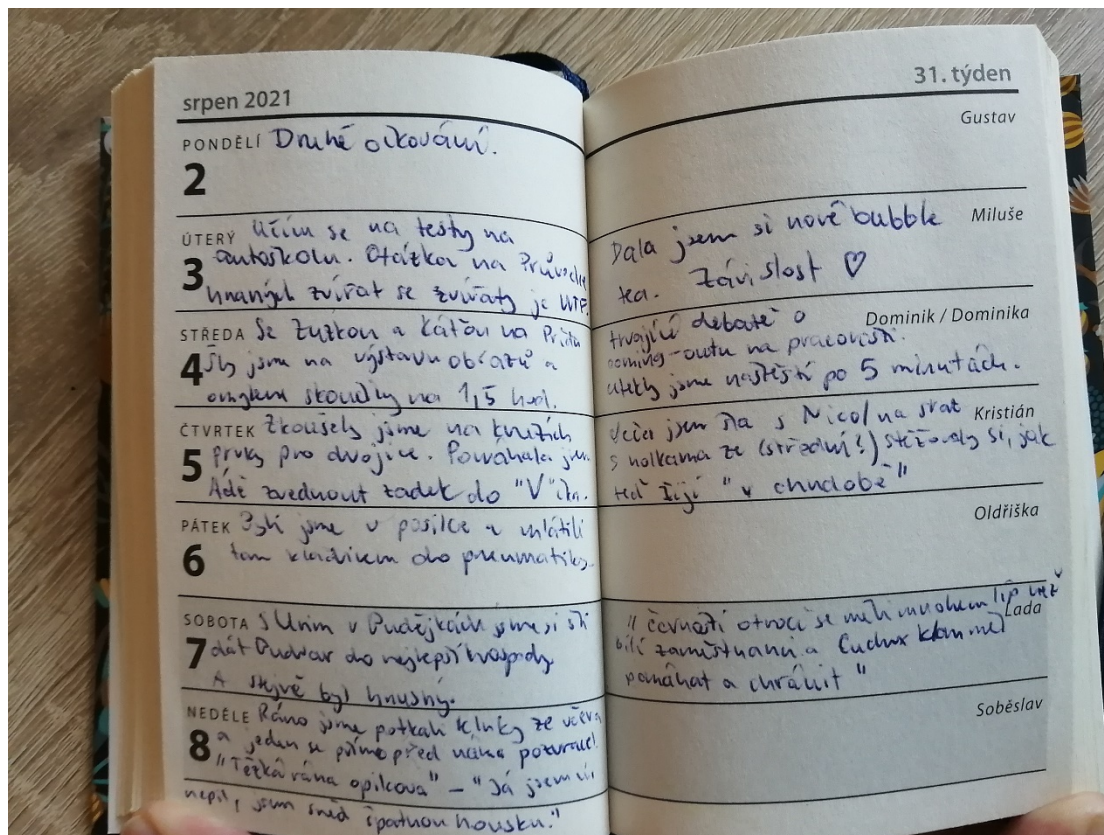 srpen 2021
PONDĚLÍ Druhé očkování.
2
ÚTERÝ Učím se na testy na
3 autoškolu. Otázka na Průvodce
hnaných zvířat se zvířaty je WTF.
STŘEDA Se Zuzkou a Káťou na Pridu
4 Šly jsme na výstavu obrazů a
omylem skončily na 1,5 hod.
ČTVRTEK Zkoušely jsme na kruzích
5 prvky pro dvojice. Pomáhala jsem
Adě zvednout zadek do "V"čka.
PÁTEK Byli jsme v posilce a mlátili
6 tam kladivem do pneumatiky.
SOBOTA S v Budějkách jsme si šli
7 dát Budvar do nejlepší hospody
A stejně byl hnusný.
NEDĚLE Ráno jsme potkali kluky ze včera
8 a jeden se přímo před náma pozvracel.
"Těžká rána opilcova" – "Já jsem nic
nepil, jsem sněd špatnou housku."
31. týden
Gustav
Miluše
Dala jsem si nové bubble
tea. Závislost ♡
Dominik / Dominika
trvající debatě o
coming-outu na pracovišti.
utekly jsme naštěstí po 5 minutách.
Kristián
Včera jsem šla s Nicol na sraz
s holkama ze (střední?) stěžovaly si, jak
teď žijí "v chudobě"
Oldřiška
Lada
"černoští otroci se měli mnohem líp než
bílí zaměstnanci a klan měl
pomáhat a chránit"
Soběslav